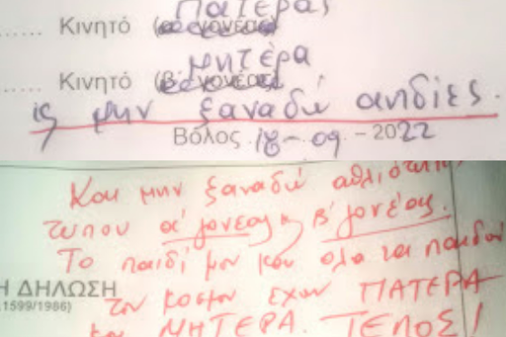 ΠΑΤΕΡΑΣ
...... Κινητό (α' γονέας)
ΜΗΤΕΡΑ
..... Κινητό (β' γονέας)
μην ξαναδώ αηδίες.
Βόλος 18-09-2022
Και μην ξαναδώ αθλιότητες
τυπου α' γονέας κ β' γονέας.
Το παιδί μου και όλα τα παιδιά
Η ΔΗΛΩΣΗ
.1599/1986)
του κοσμου εχουν ΠΑΤΕΡΑ
και ΜΗΤΕΡΑ. ΤΕΛΟΣ!